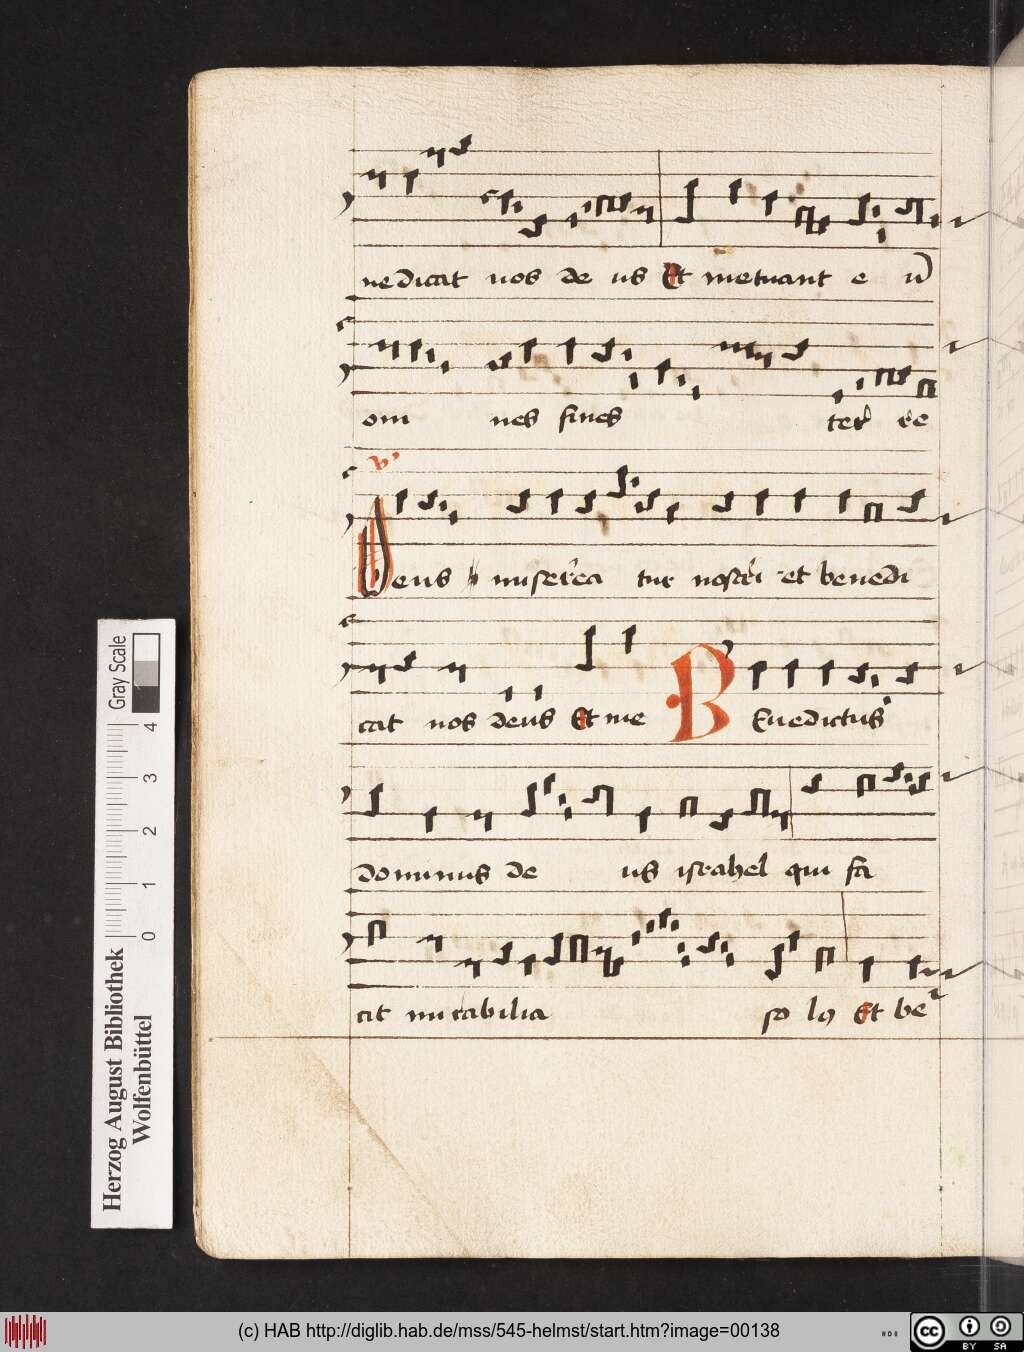 nedicat nos de us Et metuant e ū
om nes fines terr̄ re
v'
Deus miserea tur nostri et benedi
cat nos deus Et me BEnedictus
dominus de us israhel qui fa
cit mirabilia so lus Et be
Gray Scale
0 1 2 3 4
Herzog August Bibliothek
Wolfenbüttel
(c) HAB http://diglib.hab.de/mss/545-helmst/start.htm?image=00138
cc BY SA